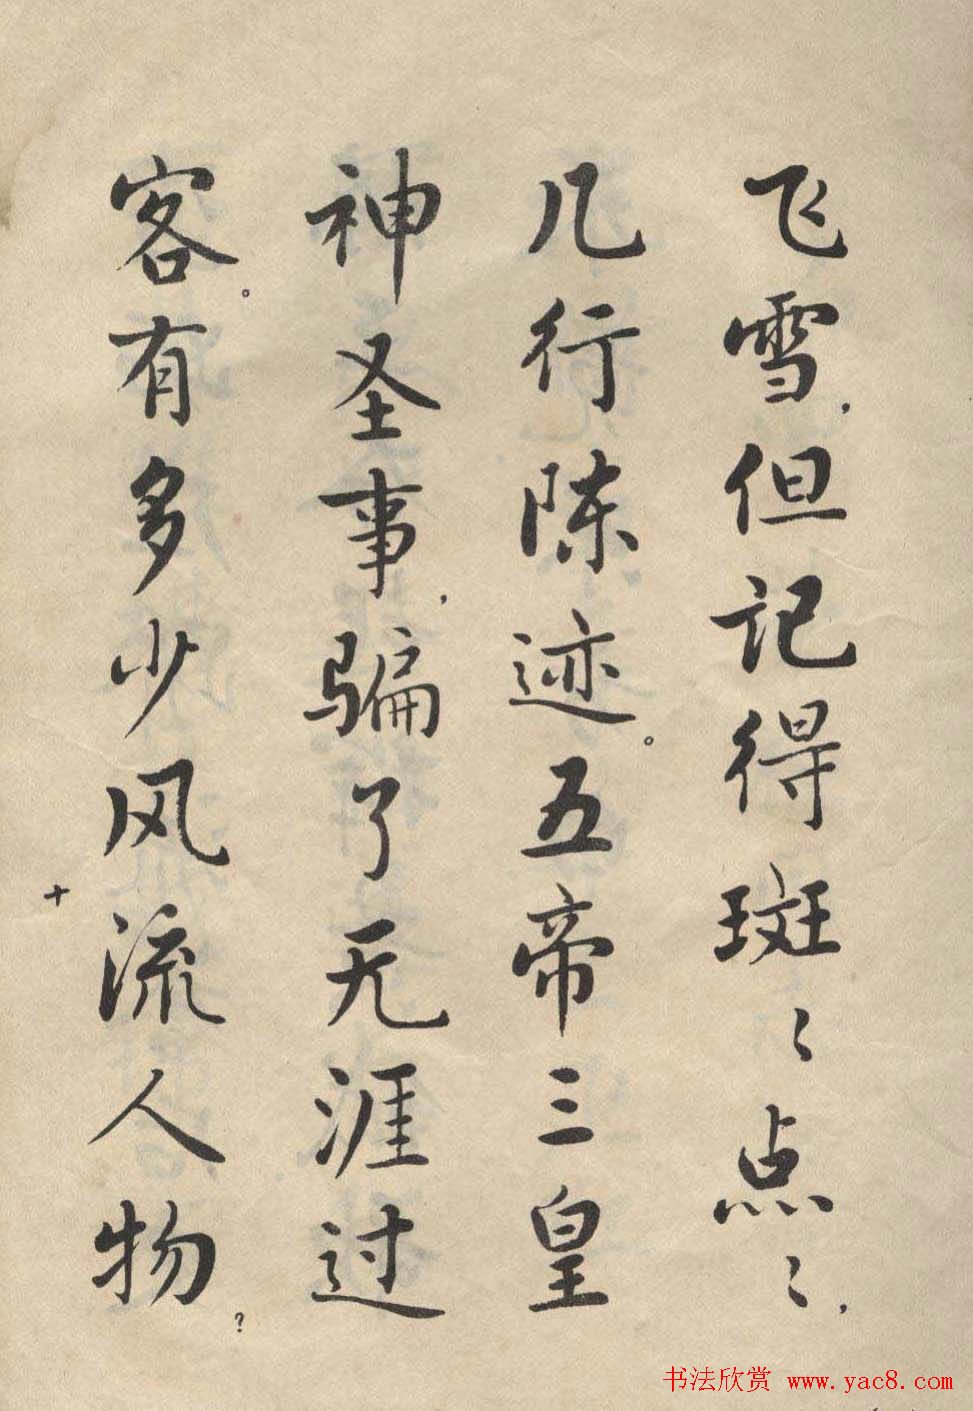 飞雪,但记得斑〻点〻,
几行陈迹。五帝三皇
神圣事,骗了无涯过
客。有多少风流人物?
十
书法欣赏 www.yac8.com